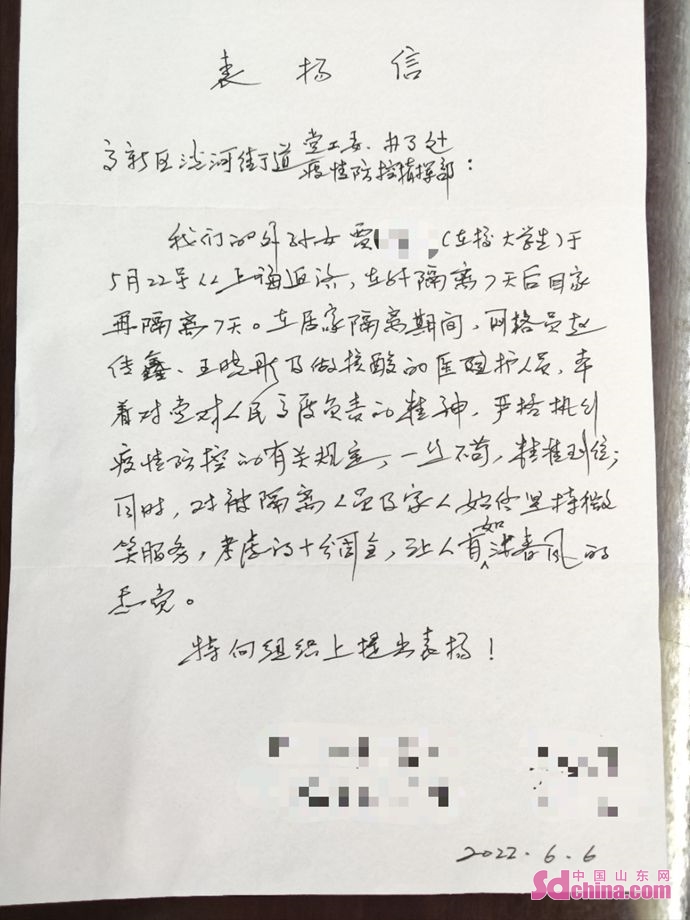 表扬信
高新区洪河街道党工委、办事处
疫情防控指挥部：
我们的外孙女贾（在校大学生）于
5月22号从上海返济，在外隔离7天后回家
再隔离7天。在居家隔离期间，网格员赵
传鑫、王晓彤及做核酸的医护人员，本
着对党对人民高度负责的精神，严格执行
疫情防控的有关规定，一丝不苟，精准到位；
同时，对被隔离人员及家人始终坚持微
笑服务，考虑的十分周全，让人有如沐春风的
感觉。
特向组织上提出表扬！
2022.6.6
中国山东网
Sdchina.com